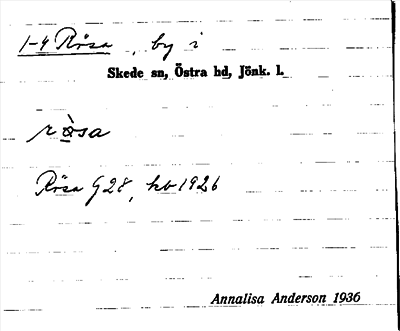 1-4 Rösa, by i
Skede sn, Östra hd, Jönk. l.
ròsa
Rösa G28, kb 1926
Annalisa Anderson 1936